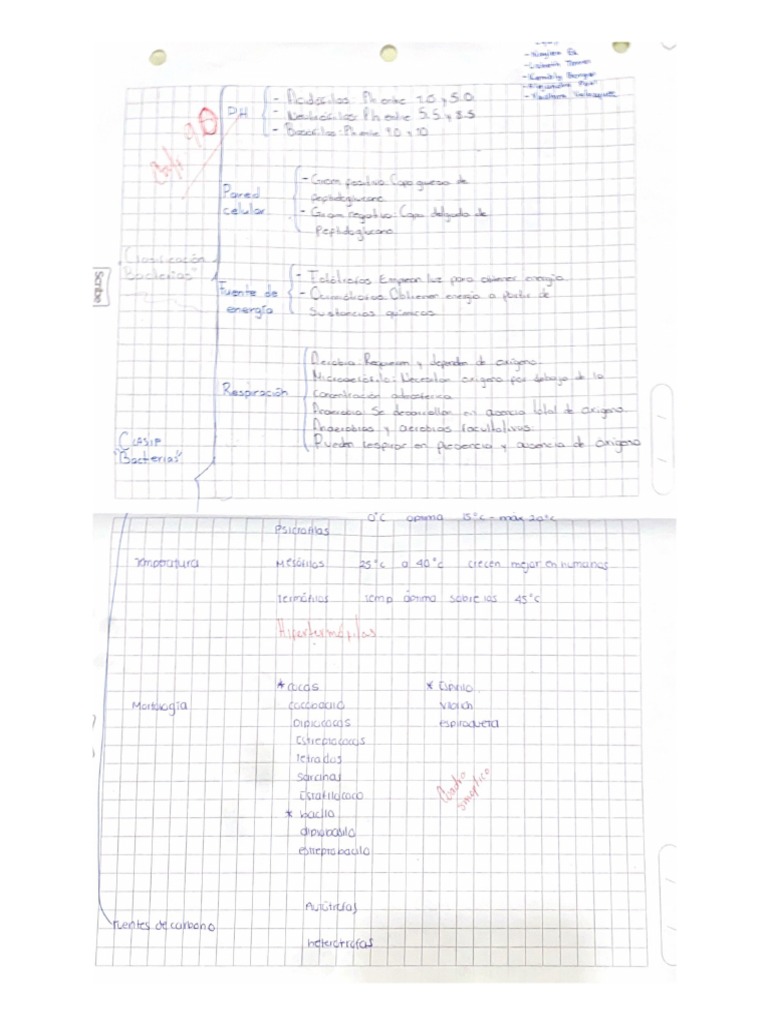 PH
- Acidófilas: Ph entre 1.0 y 5.0
- Neutrófilos: Ph entre 5.5 y 8.5
- Basófilas: Ph entre 9.0 y 10
Calf: 9.0
Pared celular
- Gram positiva Capa gruesa de
peptidoglucano
- Gram negativa Capa delgada de
Peptidoglucano
"Clasificación
Bacterias"
Scribe
Fuente de
energía
- Fotótrofos Emplean luz para obtener energía
- Quimiótrofos Obtienen energía a partir de
Sustancias químicas
Respiración
Aerobia: Requieren y dependen de oxigeno
Microaerófilo: Necesitan oxigeno por debajo de la
concentración
Anaerobia Se desarrollan en ausencia total de oxigeno
Anaerobias y aerobias facultativas:
Pueden respirar en presencia y ausencia de oxigeno
Clasif
"Bacterias"
0°C optima 15°C - max 20°C
Psicrofilas
Temperatura
Mesófilos 25°c a 40°c crecen mejor en humanos
Termófilos temp óptima sobre los 45°C
Hipertermófilas
Morfología
* cocos
cocobacilo
Diplococos
Estreptococos
Tetradas
Sarcinas
Estafilococo
* bacilo
diplobacilo
estreptobacilo
* Espirilo
Vibrion
espiroqueta
Cuadro
sinóptico
Fuentes de carbono
Autótrofas
heterótrofas